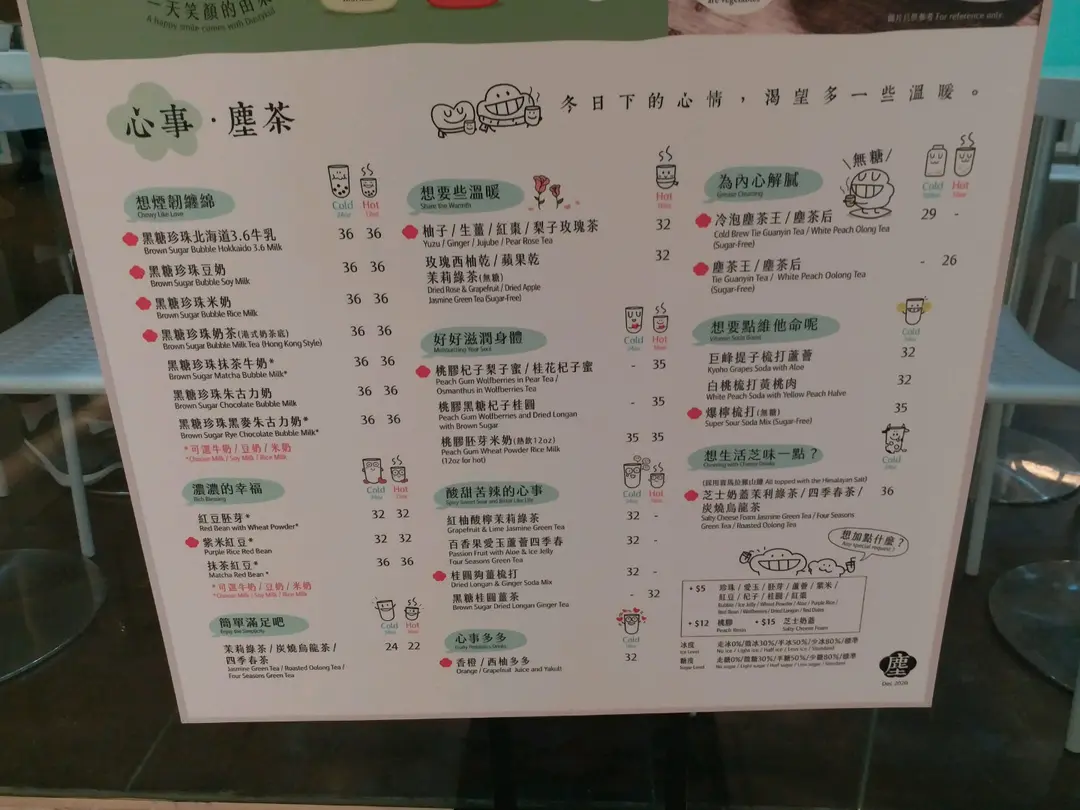 一天笑顏的由來
A happy smile comes with Dustykid
are vegetables
圖片只供參考 For reference only.
心事·塵茶
冬日下的心情，渴望多一些溫暖。
想煙韌纏綿
Chewy Like Love
Cold
Hot
黑糖珍珠北海道3.6牛乳 36 36
Brown Sugar Bubble Hokkaido 3.6 Milk
黑糖珍珠豆奶 36 36
Brown Sugar Bubble Soy Milk
黑糖珍珠米奶 36 36
Brown Sugar Bubble Rice Milk
黑糖珍珠奶茶(港式奶茶底) 36 36
Brown Sugar Bubble Milk Tea (Hong Kong Style)
黑糖珍珠抹茶牛奶* 36 36
Brown Sugar Matcha Bubble Milk*
黑糖珍珠朱古力奶 36 36
Brown Sugar Chocolate Bubble Milk
黑糖珍珠黑麥朱古力奶* 36 36
Brown Sugar Rye Chocolate Bubble Milk*
*可選牛奶/豆奶/米奶
*Choose Milk / Soy Milk / Rice Milk
濃濃的幸福
Rich Blessing
Cold
Hot
紅豆胚芽* 32 32
Red Bean with Wheat Powder*
紫米紅豆* 32 32
Purple Rice Red Bean
抹茶紅豆* 36 36
Matcha Red Bean *
*可選牛奶/豆奶/米奶
*Choose Milk / Soy Milk / Rice Milk
簡單滿足吧
Enjoy the Simplicity
Cold
Hot
茉莉綠茶/炭燒烏龍茶/ 24 22
四季春茶
Jasmine Green Tea / Roasted Oolong Tea /
Four Seasons Green Tea
想要些溫暖
Share the Warmth
Hot
柚子/生薑/紅棗/梨子玫瑰茶 32
Yuzu / Ginger / Jujube / Pear Rose Tea
玫瑰西柚乾/蘋果乾 32
茉莉綠茶(無糖)
Dried Rose & Grapefruit / Dried Apple
Jasmine Green Tea (Sugar-Free)
好好滋潤身體
Moisturizing Your Soul
Cold
Hot
桃膠杞子梨子蜜/桂花杞子蜜 - 35
Peach Gum Wolfberries in Pear Tea /
Osmanthus in Wolfberries Tea
桃膠黑糖杞子桂圓 - 35
Peach Gum Wolfberries and Dried Longan
with Brown Sugar
桃膠胚芽米奶(熱飲12oz) 35 35
Peach Gum Wheat Powder Rice Milk
(12oz for hot)
酸甜苦辣的心事
Spicy Sweet Sour and Bitter Like Life
Cold
Hot
紅柚酸檸茉莉綠茶 32 -
Grapefruit & Lime Jasmine Green Tea
百香果愛玉蘆薈四季春 32 -
Passion Fruit with Aloe & Ice Jelly
Four Seasons Green Tea
桂圓夠薑梳打 32 -
Dried Longan & Ginger Soda Mix
黑糖桂圓薑茶 - 32
Brown Sugar Dried Longan Ginger Tea
心事多多
Fruity Probiotics Drinks
Cold
香橙/西柚多多 32
Orange / Grapefruit Juice and Yakult
為內心解膩
Grease Cleaning
無糖
Cold
Hot
冷泡塵茶王/塵茶后 29 -
Cold Brew Tie Guanyin Tea / White Peach Olong Tea
(Sugar-Free)
塵茶王/塵茶后 - 26
Tie Guanyin Tea / White Peach Oolong Tea
(Sugar-Free)
想要點維他命呢
Vitamin Soda Boost
Cold
巨峰提子梳打蘆薈 32
Kyoho Grapes Soda with Aloe
白桃梳打黃桃肉 32
White Peach Soda with Yellow Peach Halve
爆檸梳打(無糖) 35
Super Sour Soda Mix (Sugar-Free)
想生活芝味一點？
Cheering with Cheese Drinks
Cold
(採用喜馬拉雅山鹽 All topped with the Himalayan Salt)
芝士奶蓋茉利綠茶/四季春茶/ 36
炭燒烏龍茶
Salty Cheese Foam Jasmine Green Tea / Four Seasons
Green Tea / Roasted Oolong Tea
想加點什麼？
Any special request?
+$5 珍珠/愛玉/胚芽/蘆薈/紫米/
紅豆/杞子/桂圓/紅棗
Bubble / Ice Jelly / Wheat Powder / Aloe / Purple Rice /
Red Bean / Wolfberries / Dried Longan / Red Dates
+$12 桃膠 +$15 芝士奶蓋
Peach Resin Salty Cheese Foam
冰度 走冰0%/微冰30%/半冰50%/少冰80%/標準
Ice Level No ice / Light ice / Half ice / Less ice / Standard
糖度 走糖0%/微糖30%/半糖50%/少糖80%/標準
Sugar Level No sugar / Light sugar / Half sugar / Less sugar / Standard
塵
Dec 2020